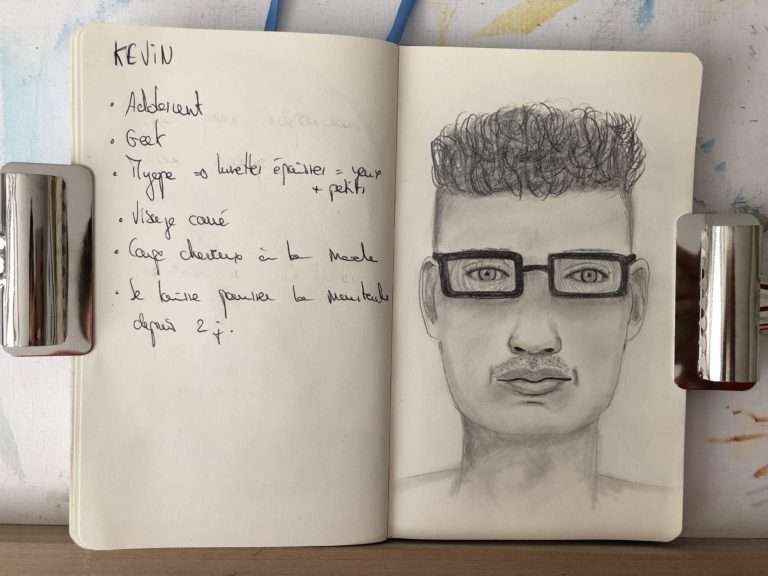 KEVIN
• Adolescent
• Geek
• Myope => lunettes épaisses = yeux
+ petits
• Visage carré
• Coupe cheveux à la mode
• Se laisse pousser la moustache
depuis 2 j.